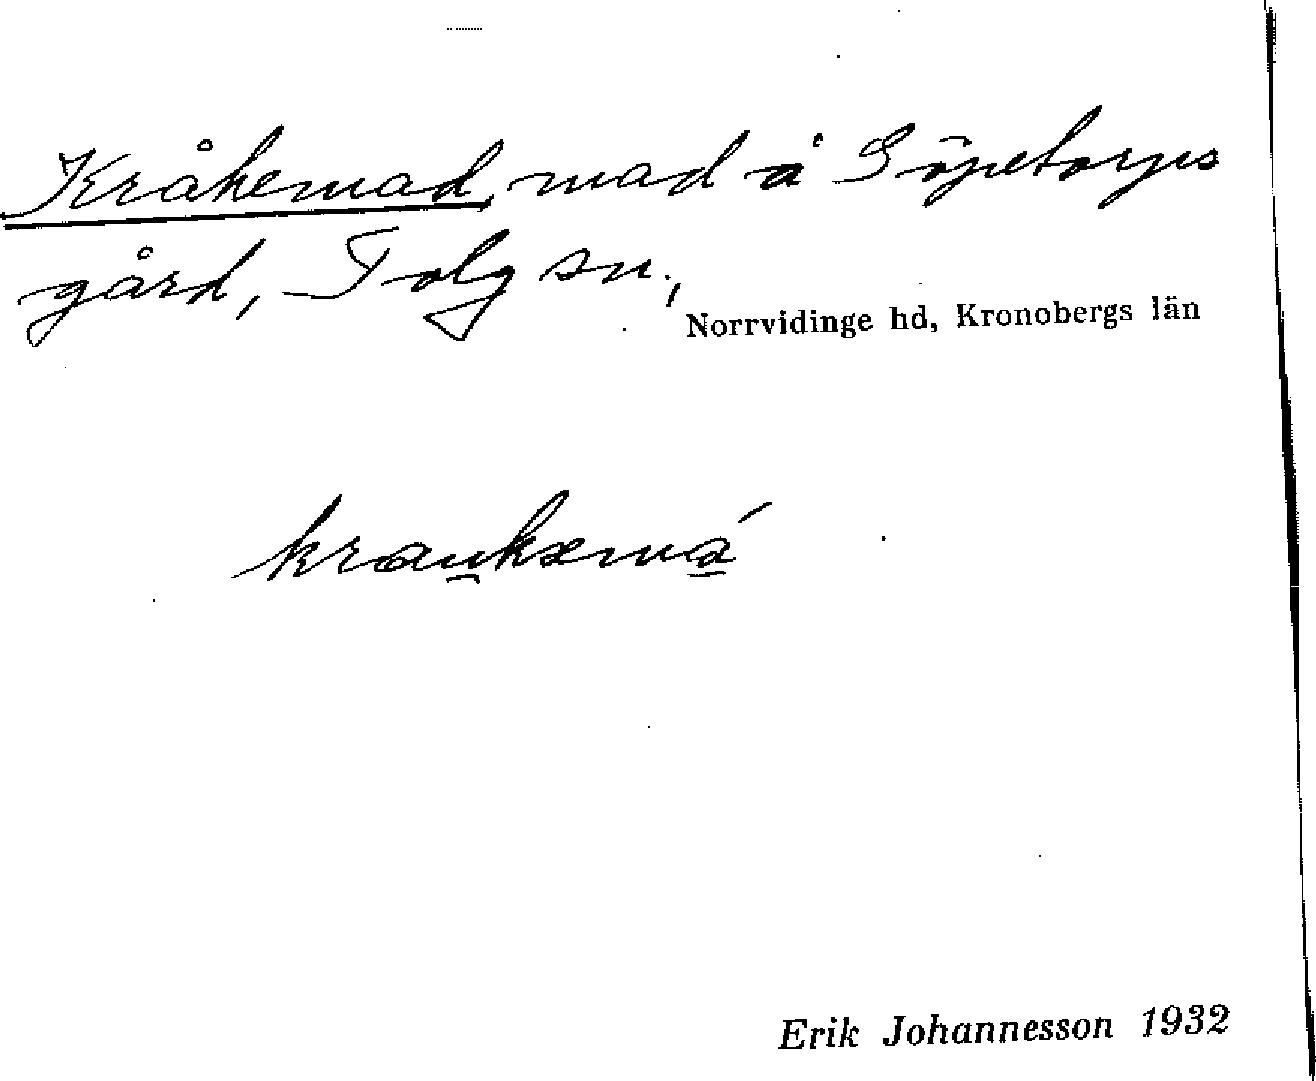 Kråkemad, mad å Söpetorps
gård, Tolg sn.,
Norrvidinge hd, Kronobergs län
kraukæmá
Erik Johannesson 1932